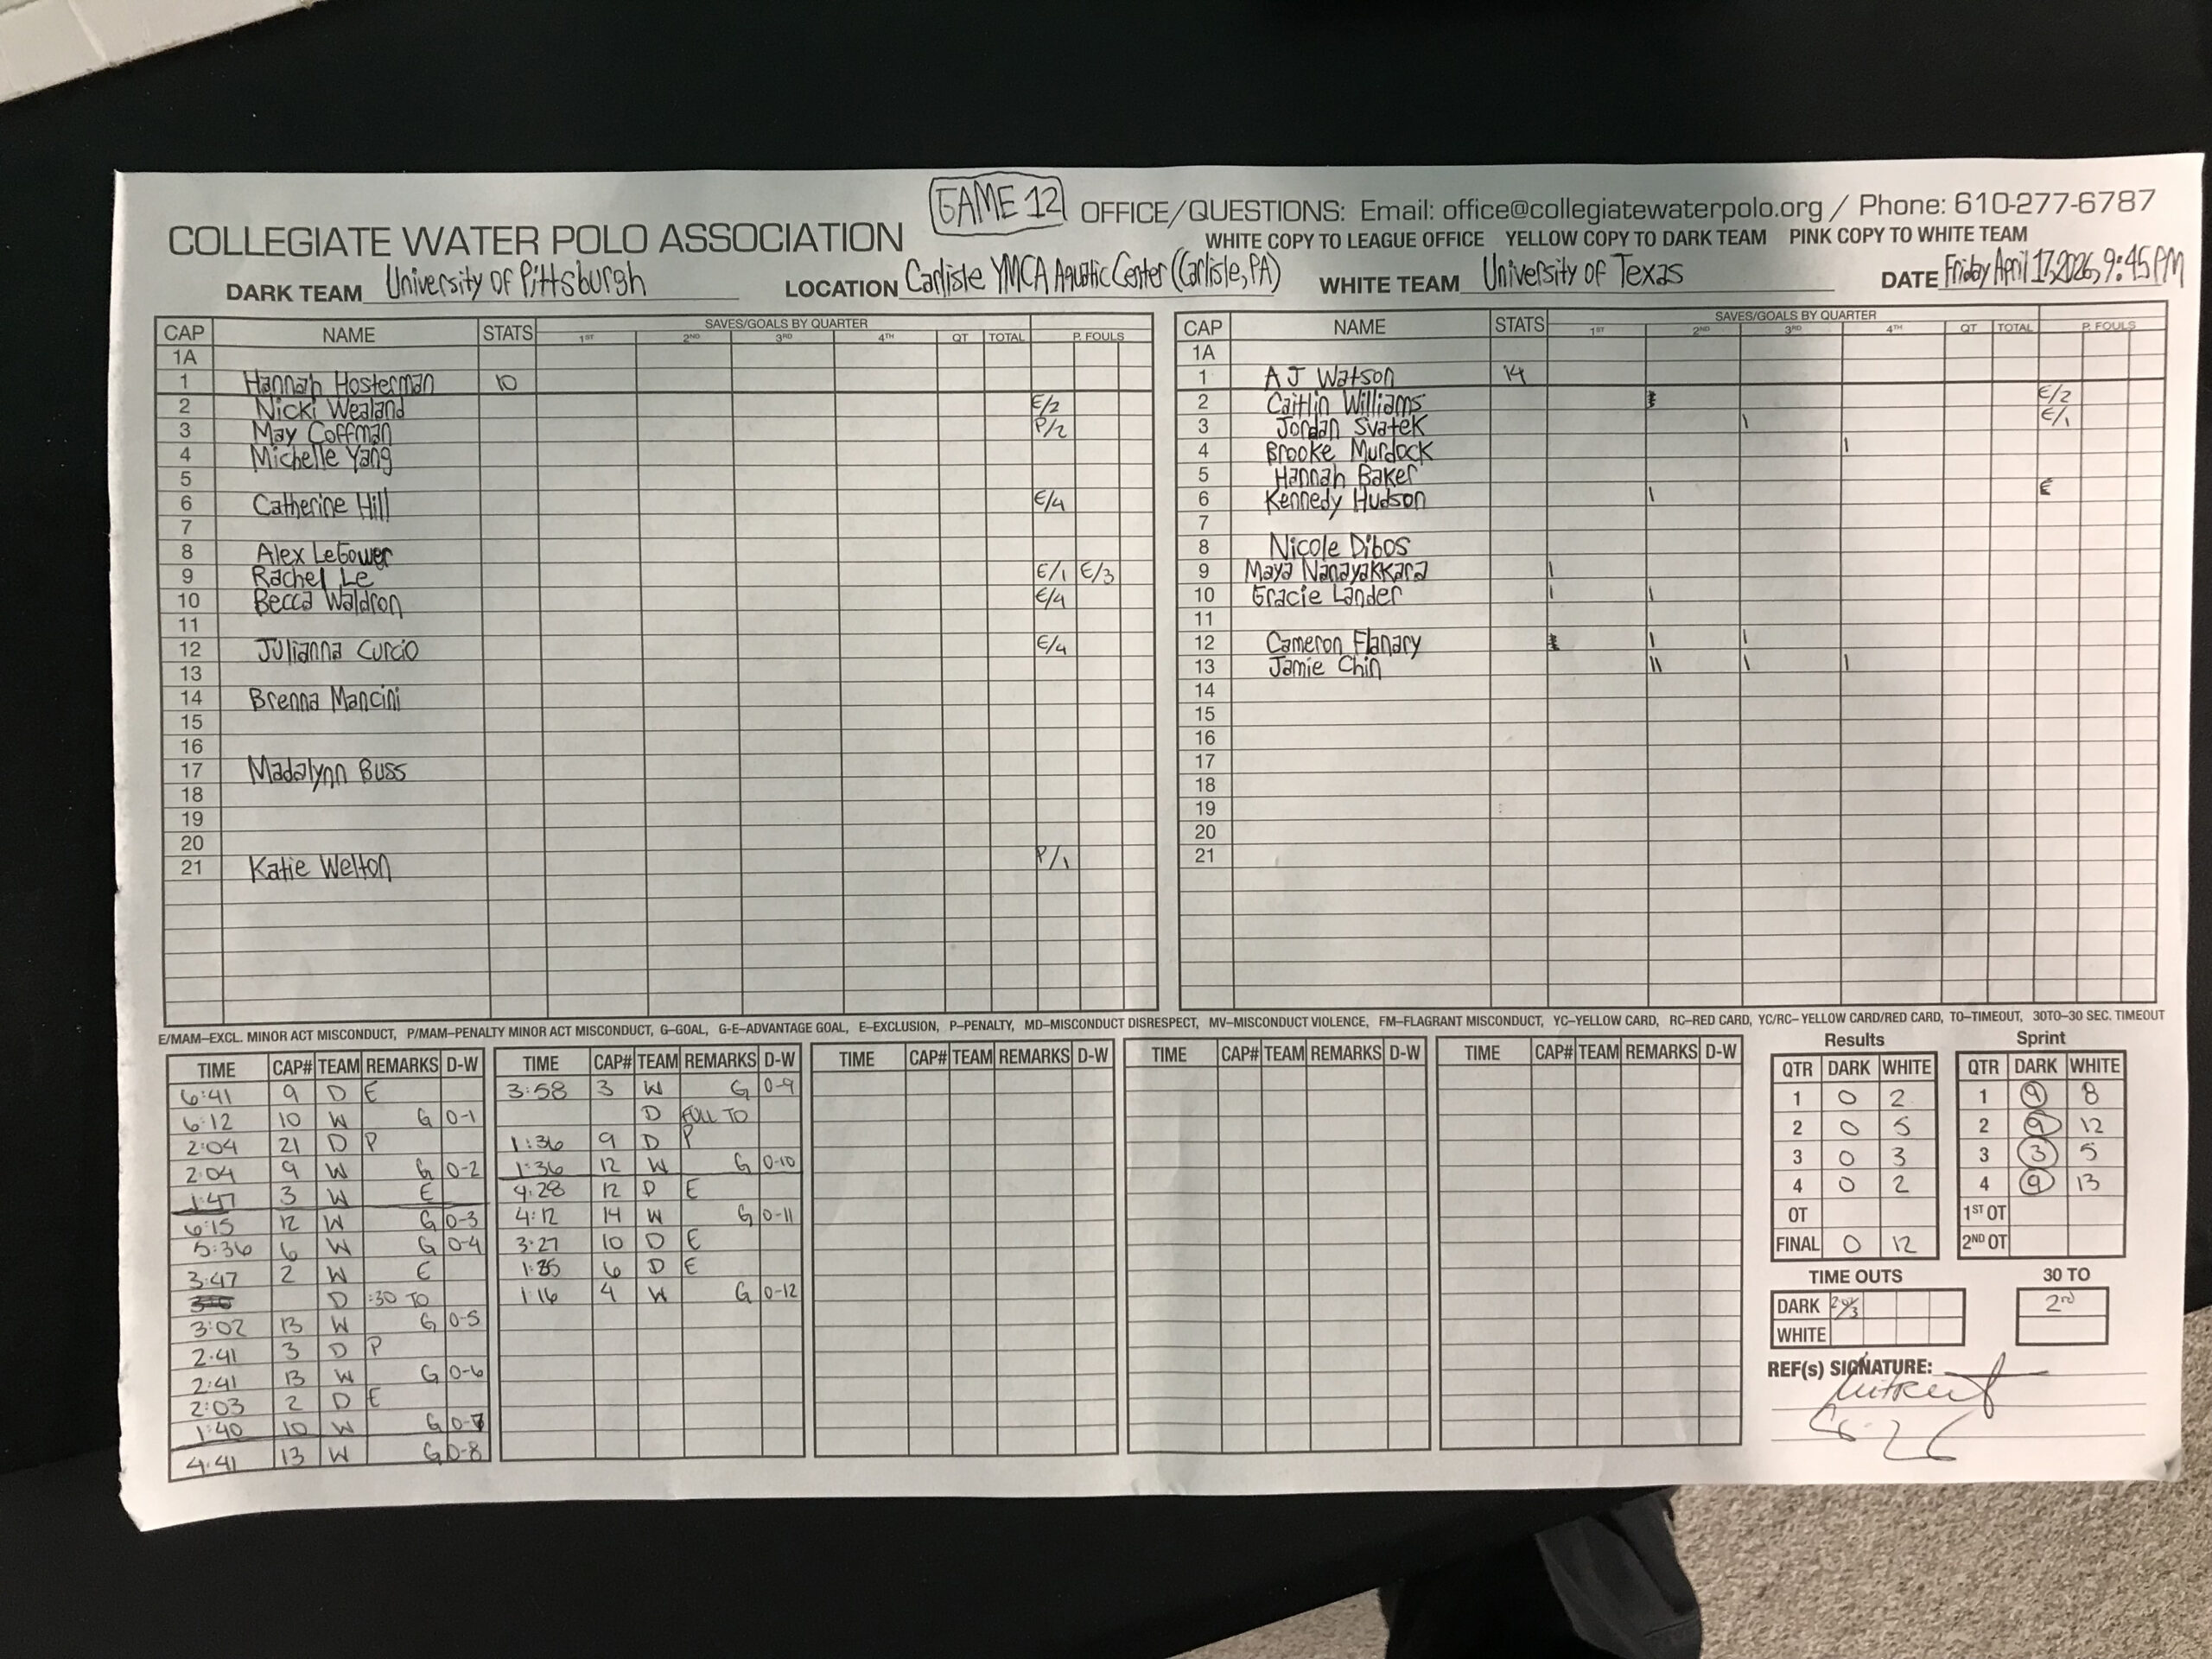 GAME 12
OFFICE/QUESTIONS: Email: office@collegiatewaterpolo.org / Phone: 610-277-6787
COLLEGIATE WATER POLO ASSOCIATION
WHITE COPY TO LEAGUE OFFICE YELLOW COPY TO DARK TEAM PINK COPY TO WHITE TEAM
DARK TEAM University of Pittsburgh LOCATION Carlisle YMCA Aquatic Center (Carlisle, PA) WHITE TEAM University of Texas DATE Friday April 17, 2026, 9:45 PM
CAP NAME STATS SAVES/GOALS BY QUARTER
1ST 2ND 3RD 4TH QT TOTAL P. FOULS
1A
1 Hannah Hosterman 10
2 Nicki Wealand E/2
3 May Coffman P/2
4 Michelle Yang
5
6 Catherine Hill E/4
7
8 Alex LeGower
9 Rachel Le E/1 E/3
10 Becca Waldron E/4
11
12 Julianna Curcio E/4
13
14 Brenna Mancini
15
16
17 Madalynn Buss
18
19
20
21 Katie Welton P/1
CAP NAME STATS SAVES/GOALS BY QUARTER
1ST 2ND 3RD 4TH QT TOTAL P. FOULS
1A
1 AJ Watson 14
2 Caitlin Williams E/2
3 Jordan Svatek | E/1
4 Brooke Murdock |
5 Hannah Baker
6 Kennedy Hudson | E
7
8 Nicole Dibos
9 Maya Nanayakkara |
10 Gracie Lander | |
11
12 Cameron Flanary | |
13 Jamie Chin || | |
14
15
16
17
18
19
20
21
E/MAM–EXCL. MINOR ACT MISCONDUCT, P/MAM–PENALTY MINOR ACT MISCONDUCT, G–GOAL, G-E–ADVANTAGE GOAL, E–EXCLUSION, P–PENALTY, MD–MISCONDUCT DISRESPECT, MV–MISCONDUCT VIOLENCE, FM–FLAGRANT MISCONDUCT, YC–YELLOW CARD, RC–RED CARD, YC/RC–YELLOW CARD/RED CARD, TO–TIMEOUT, 30TO–30 SEC. TIMEOUT
TIME CAP# TEAM REMARKS D-W
6:41 9 D E
6:12 10 W G 0-1
2:04 21 D P
2:04 9 W G 0-2
1:47 3 W E
6:15 12 W G 0-3
5:36 6 W G 0-4
3:47 2 W E
D :30 TO
3:02 13 W G 0-5
2:41 3 D P
2:41 13 W G 0-6
2:03 2 D E
1:40 10 W G 0-7
4:41 13 W G 0-8
TIME CAP# TEAM REMARKS D-W
3:58 3 W G 0-9
D FULL TO
1:36 9 D P
1:36 12 W G 0-10
4:28 12 D E
4:12 14 W G 0-11
3:27 10 D E
1:35 6 D E
1:16 4 W G 0-12
TIME CAP# TEAM REMARKS D-W
TIME CAP# TEAM REMARKS D-W
TIME CAP# TEAM REMARKS D-W
Results
QTR DARK WHITE
1 0 2
2 0 5
3 0 3
4 0 2
OT
FINAL 0 12
Sprint
QTR DARK WHITE
1 9 8
2 9 12
3 3 5
4 9 13
1ST OT
2ND OT
TIME OUTS
DARK
WHITE
30 TO
2nd
REF(s) SIGNATURE: